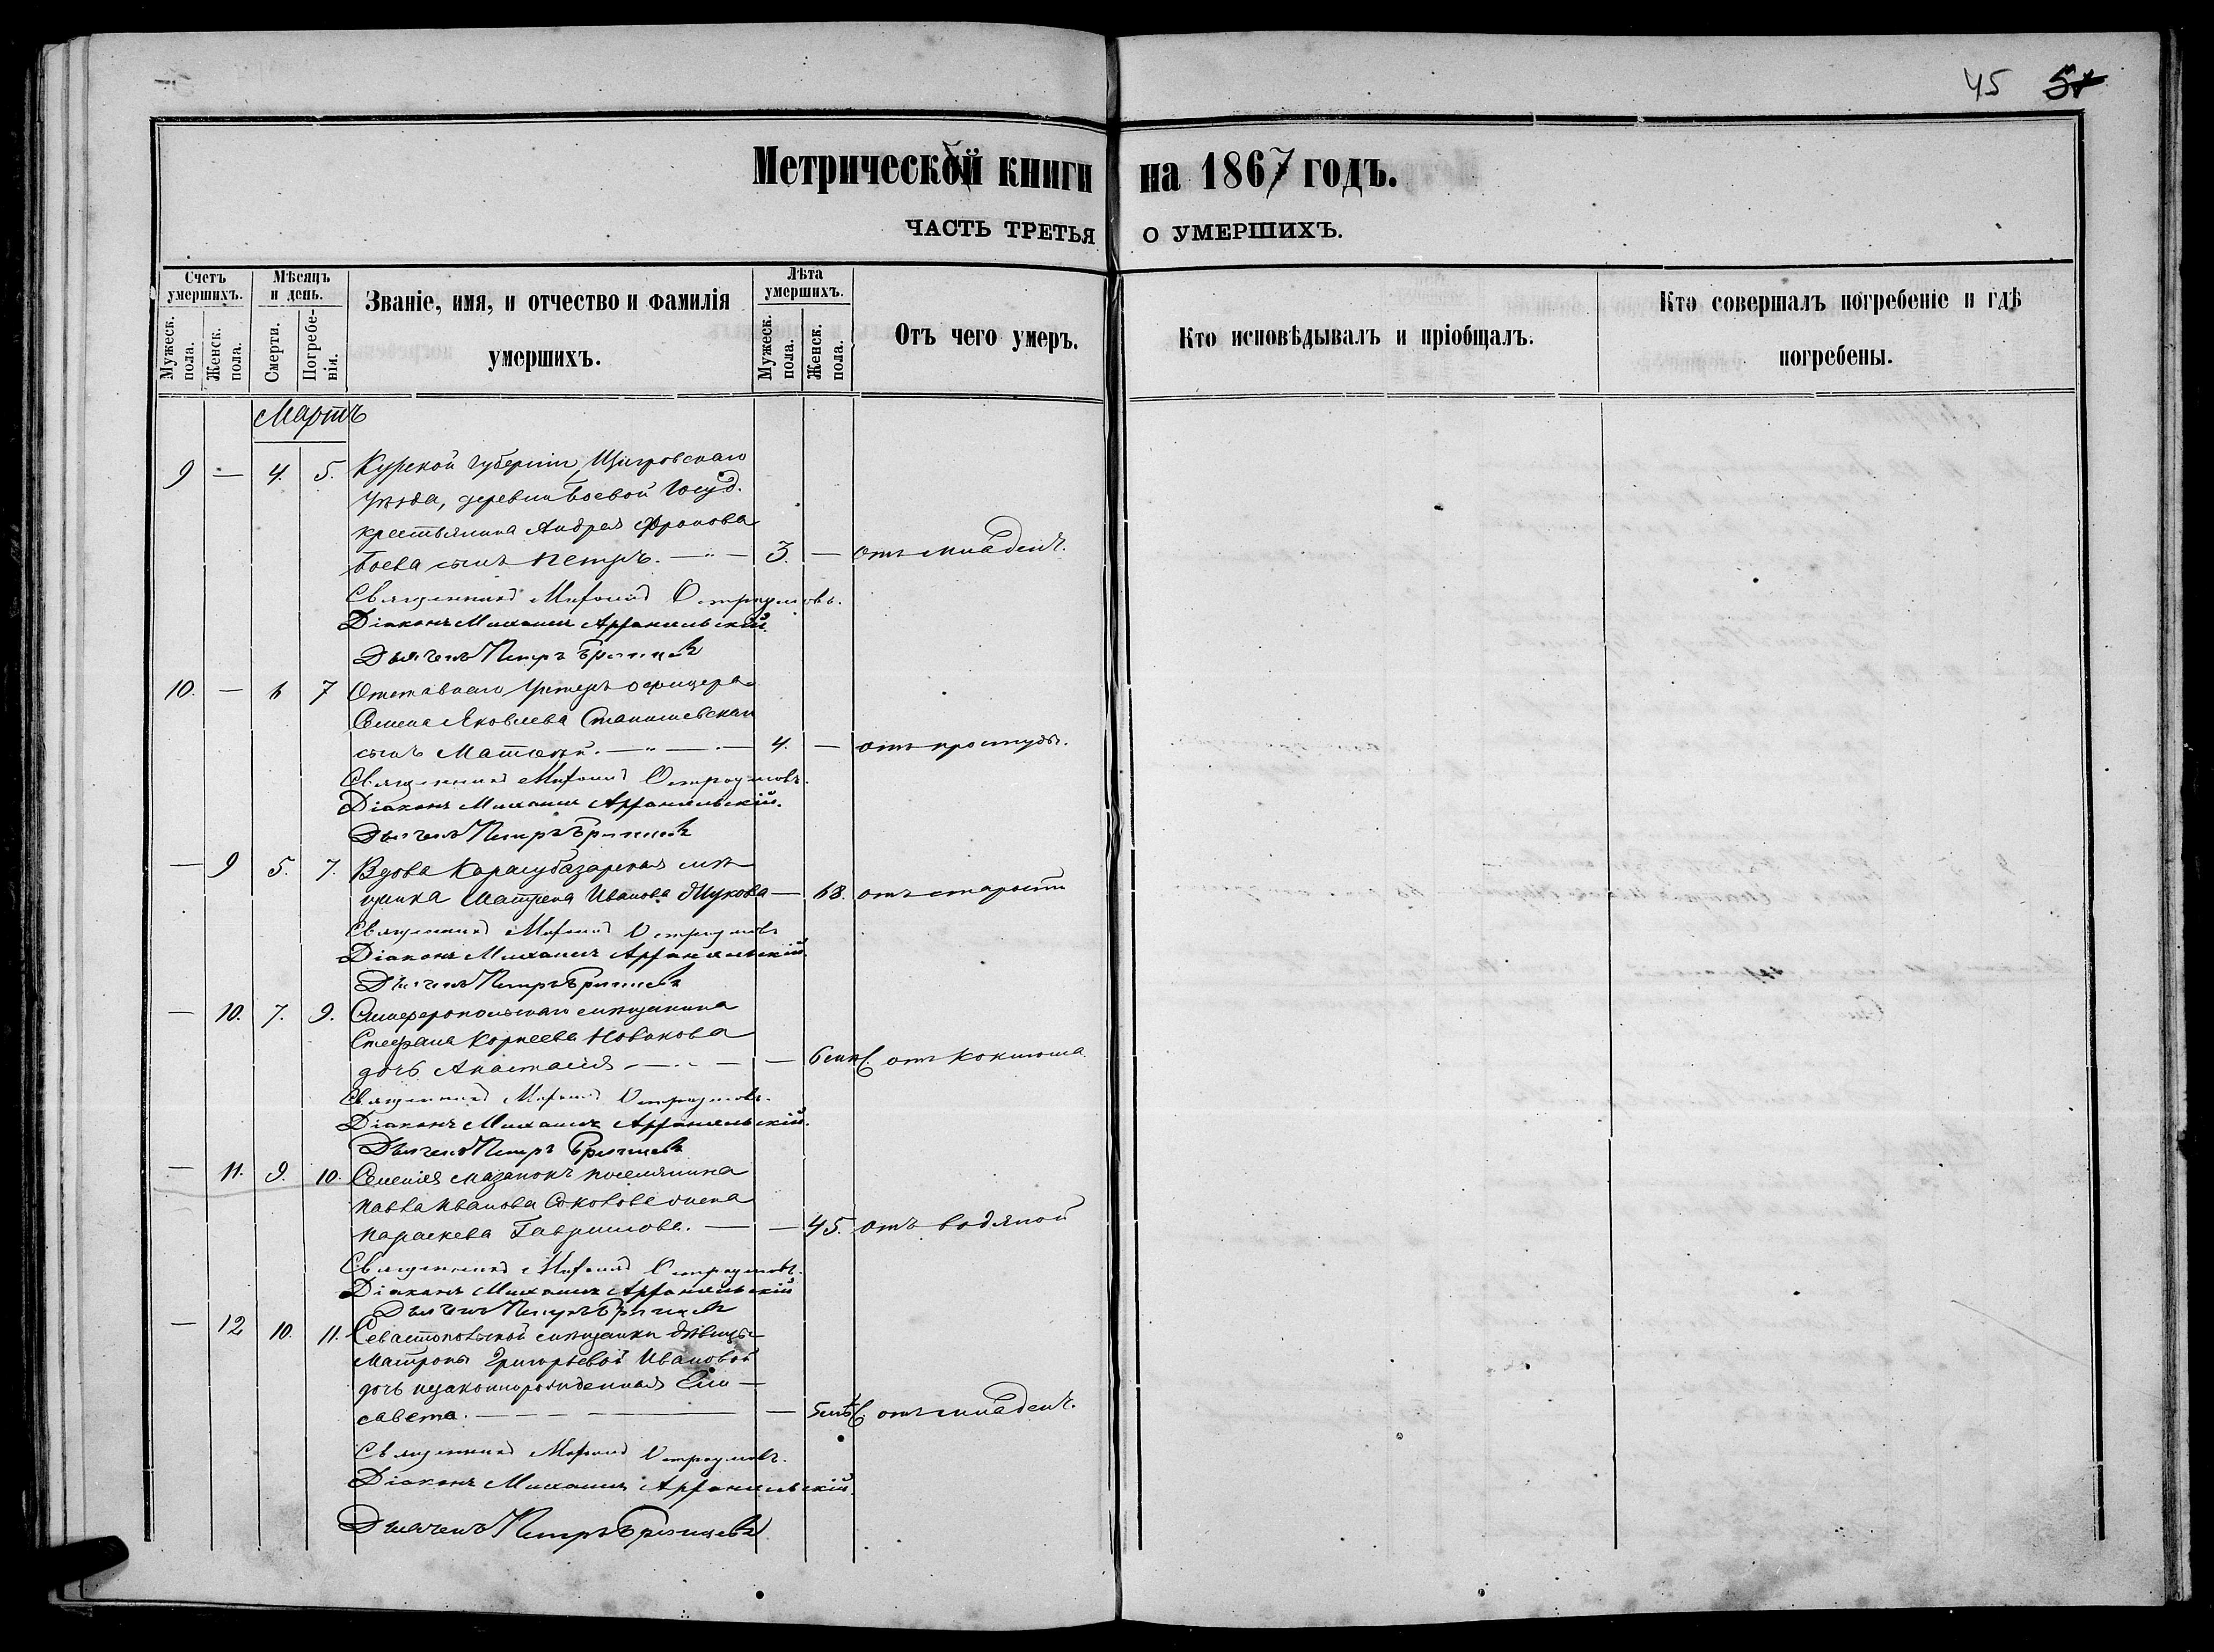 45 51
Метрической книги на 1867 годъ.
ЧАСТЬ ТРЕТЬЯ О УМЕРШИХЪ.
Счетъ умершихъ.
Мужеск. пола.
Женск. пола.
Мѣсяцъ и день.
Смерти.
Погребенія.
Званіе, имя, и отчество и фамилія
умершихъ.
Лѣта умершихъ.
Мужеск. пола.
Женск. пола.
Отъ чего умеръ.
Кто исповѣдывалъ и пріобщалъ.
Кто совершалъ погребеніе и гдѣ
погребены.
Мартъ
9 — 4. 5. Курской губерніи, Щигровскаго
уѣзда, деревни Боевой Госуд.
крестьянина Андрея Фролова
Боева сынъ Петръ. — 3. — отъ младенч.
Священникъ Остроумовъ.
Діаконъ Михаилъ Архангельскій.
Дьячекъ Петръ
10. — 6 7 Отставнаго Унтеръ офицера
Семена Яковлева
сынъ Матвѣй. — 4. — отъ простуды.
Священникъ Остроумовъ.
Діаконъ Михаилъ Архангельскій.
Дьячекъ Петръ
— 9 5. 7. Вдова Карасубазарская мѣ-
щанка Матрена Иванова Жукова — 68. отъ старости
Священникъ Остроумовъ
Діаконъ Михаилъ Архангельскій.
Дьячекъ Петръ
— 10. 7. 9. Симферопольскаго мѣщанина
Стефана Корнеева Новикова
дочь Анастасія — — 6 мѣс. отъ коклюша
Священникъ Остроумовъ.
Діаконъ Михаилъ Архангельскій.
Дьячекъ Петръ
— 11. 9. 10. Селенія Мазанокъ поселянина
Павла Иванова жена
Параскева Гаврилова. — — 45. отъ водяной
Священникъ Остроумовъ.
Діаконъ Михаилъ Архангельскій
Дьячекъ Петръ
— 12 10. 11. Севастопольской мѣщанки дѣвицы
Матроны Григорьевой Ивановой
дочь незаконнорожденная Ели-
савета. — — 5 мѣс. отъ младенч.
Священникъ Остроумовъ.
Діаконъ Михаилъ Архангельскій.
Дьячекъ Петръ